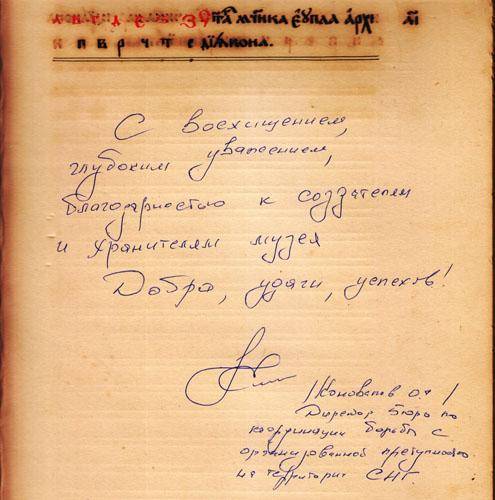 С восхищением,
глубоким уважением,
благодарностью к создателям
и хранителям музея
Добра, удачи, успехов!
Директор Бюро по
координации борьбы с
организованной преступностью
на территории СНГ.